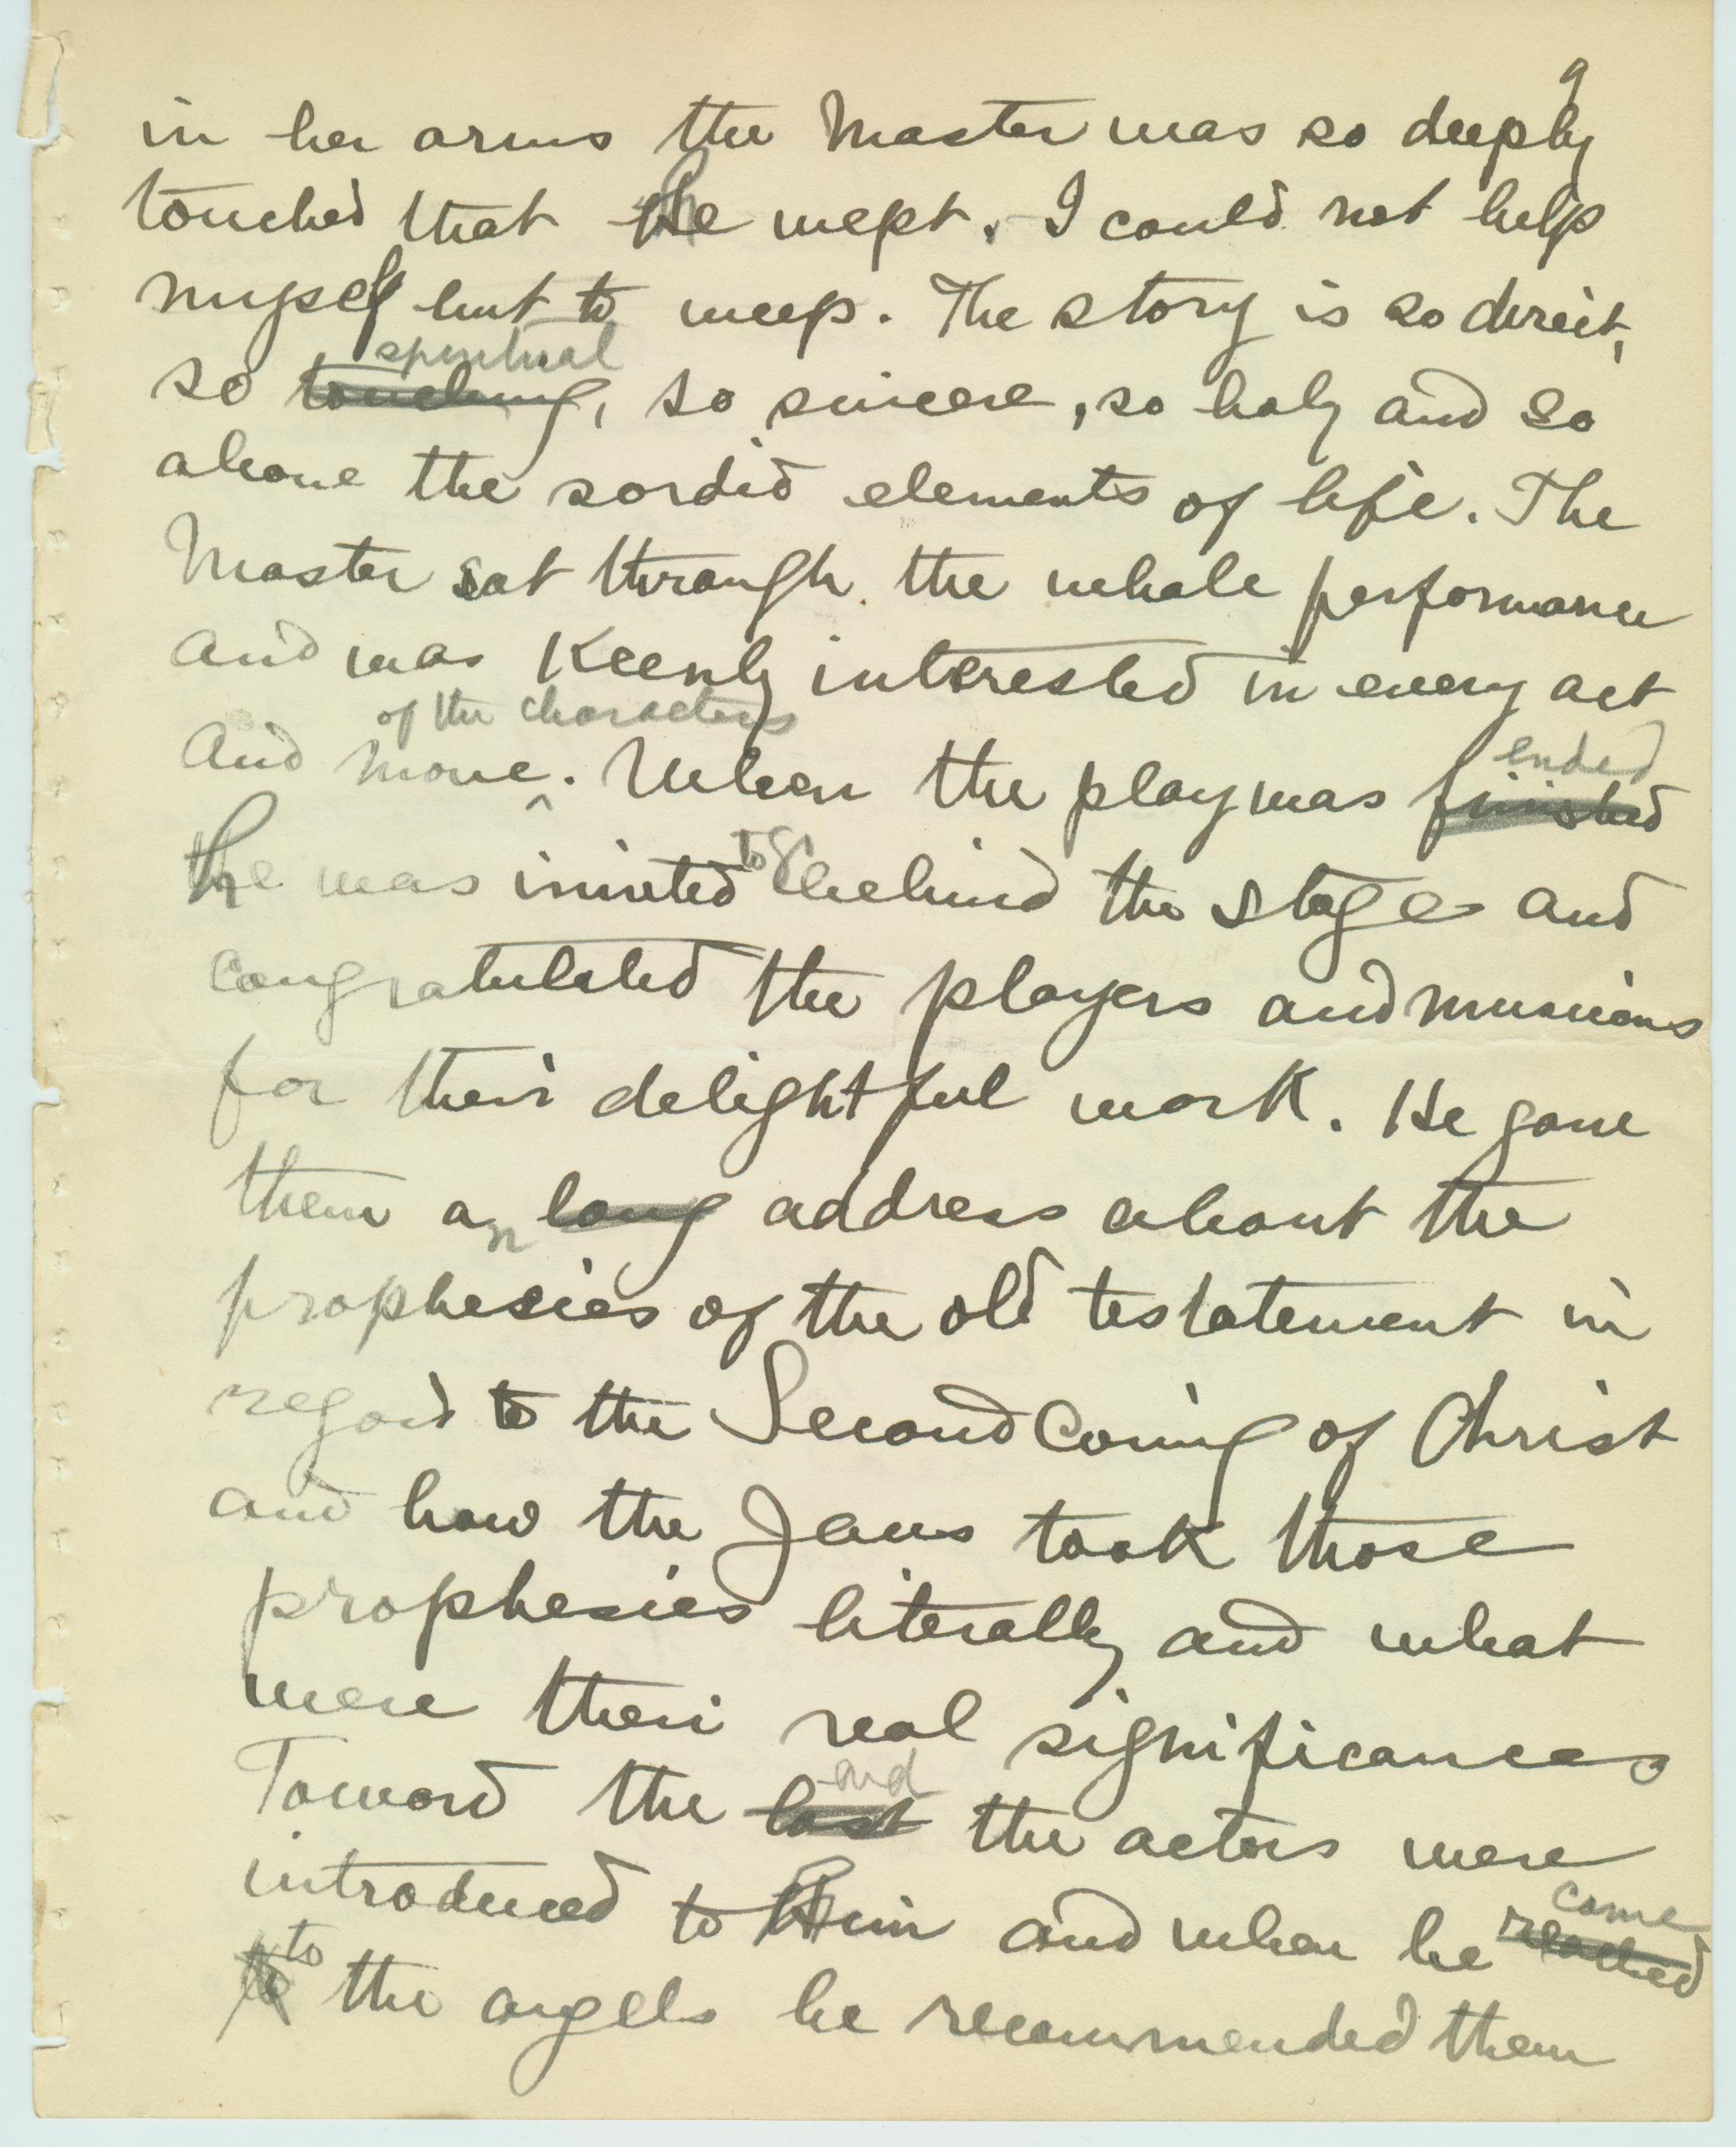 9
in her arms the Master was so deeply
touched that he wept. I could not help
myself but to weep. The story is so direct,
spiritual
so touching, so sincere, so holy and so
above the sordid elements of life. The
Master sat through the whole performance
and was keenly interested in every act
of the characters
and move ^. When the play was finished
ended
he was invited to go behind the stage and
congratulated the players and musicians
for their delightful work. He gave
them an long address about the
prophesies of the old testatement in
regard to the Second Coming of Christ
and how the Jews took those
prophesies literally and what
were their real significances
end
Toward the last the actors were
introduced to him and when he reached
came
to the angels he recommended them